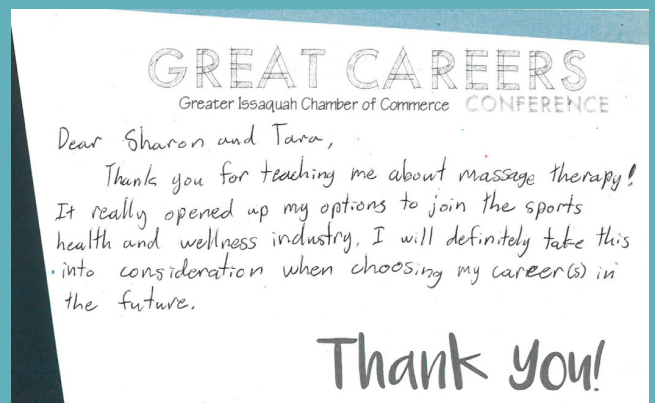 GREAT CAREERS
Greater Issaquah Chamber of Commerce CONFERENCE
Dear Sharon and Tara,
Thank you for teaching me about massage therapy!
It really opened up my options to join the sports
health and wellness industry. I will definitely take this
into consideration when choosing my career(s) in
the future.
Thank you!